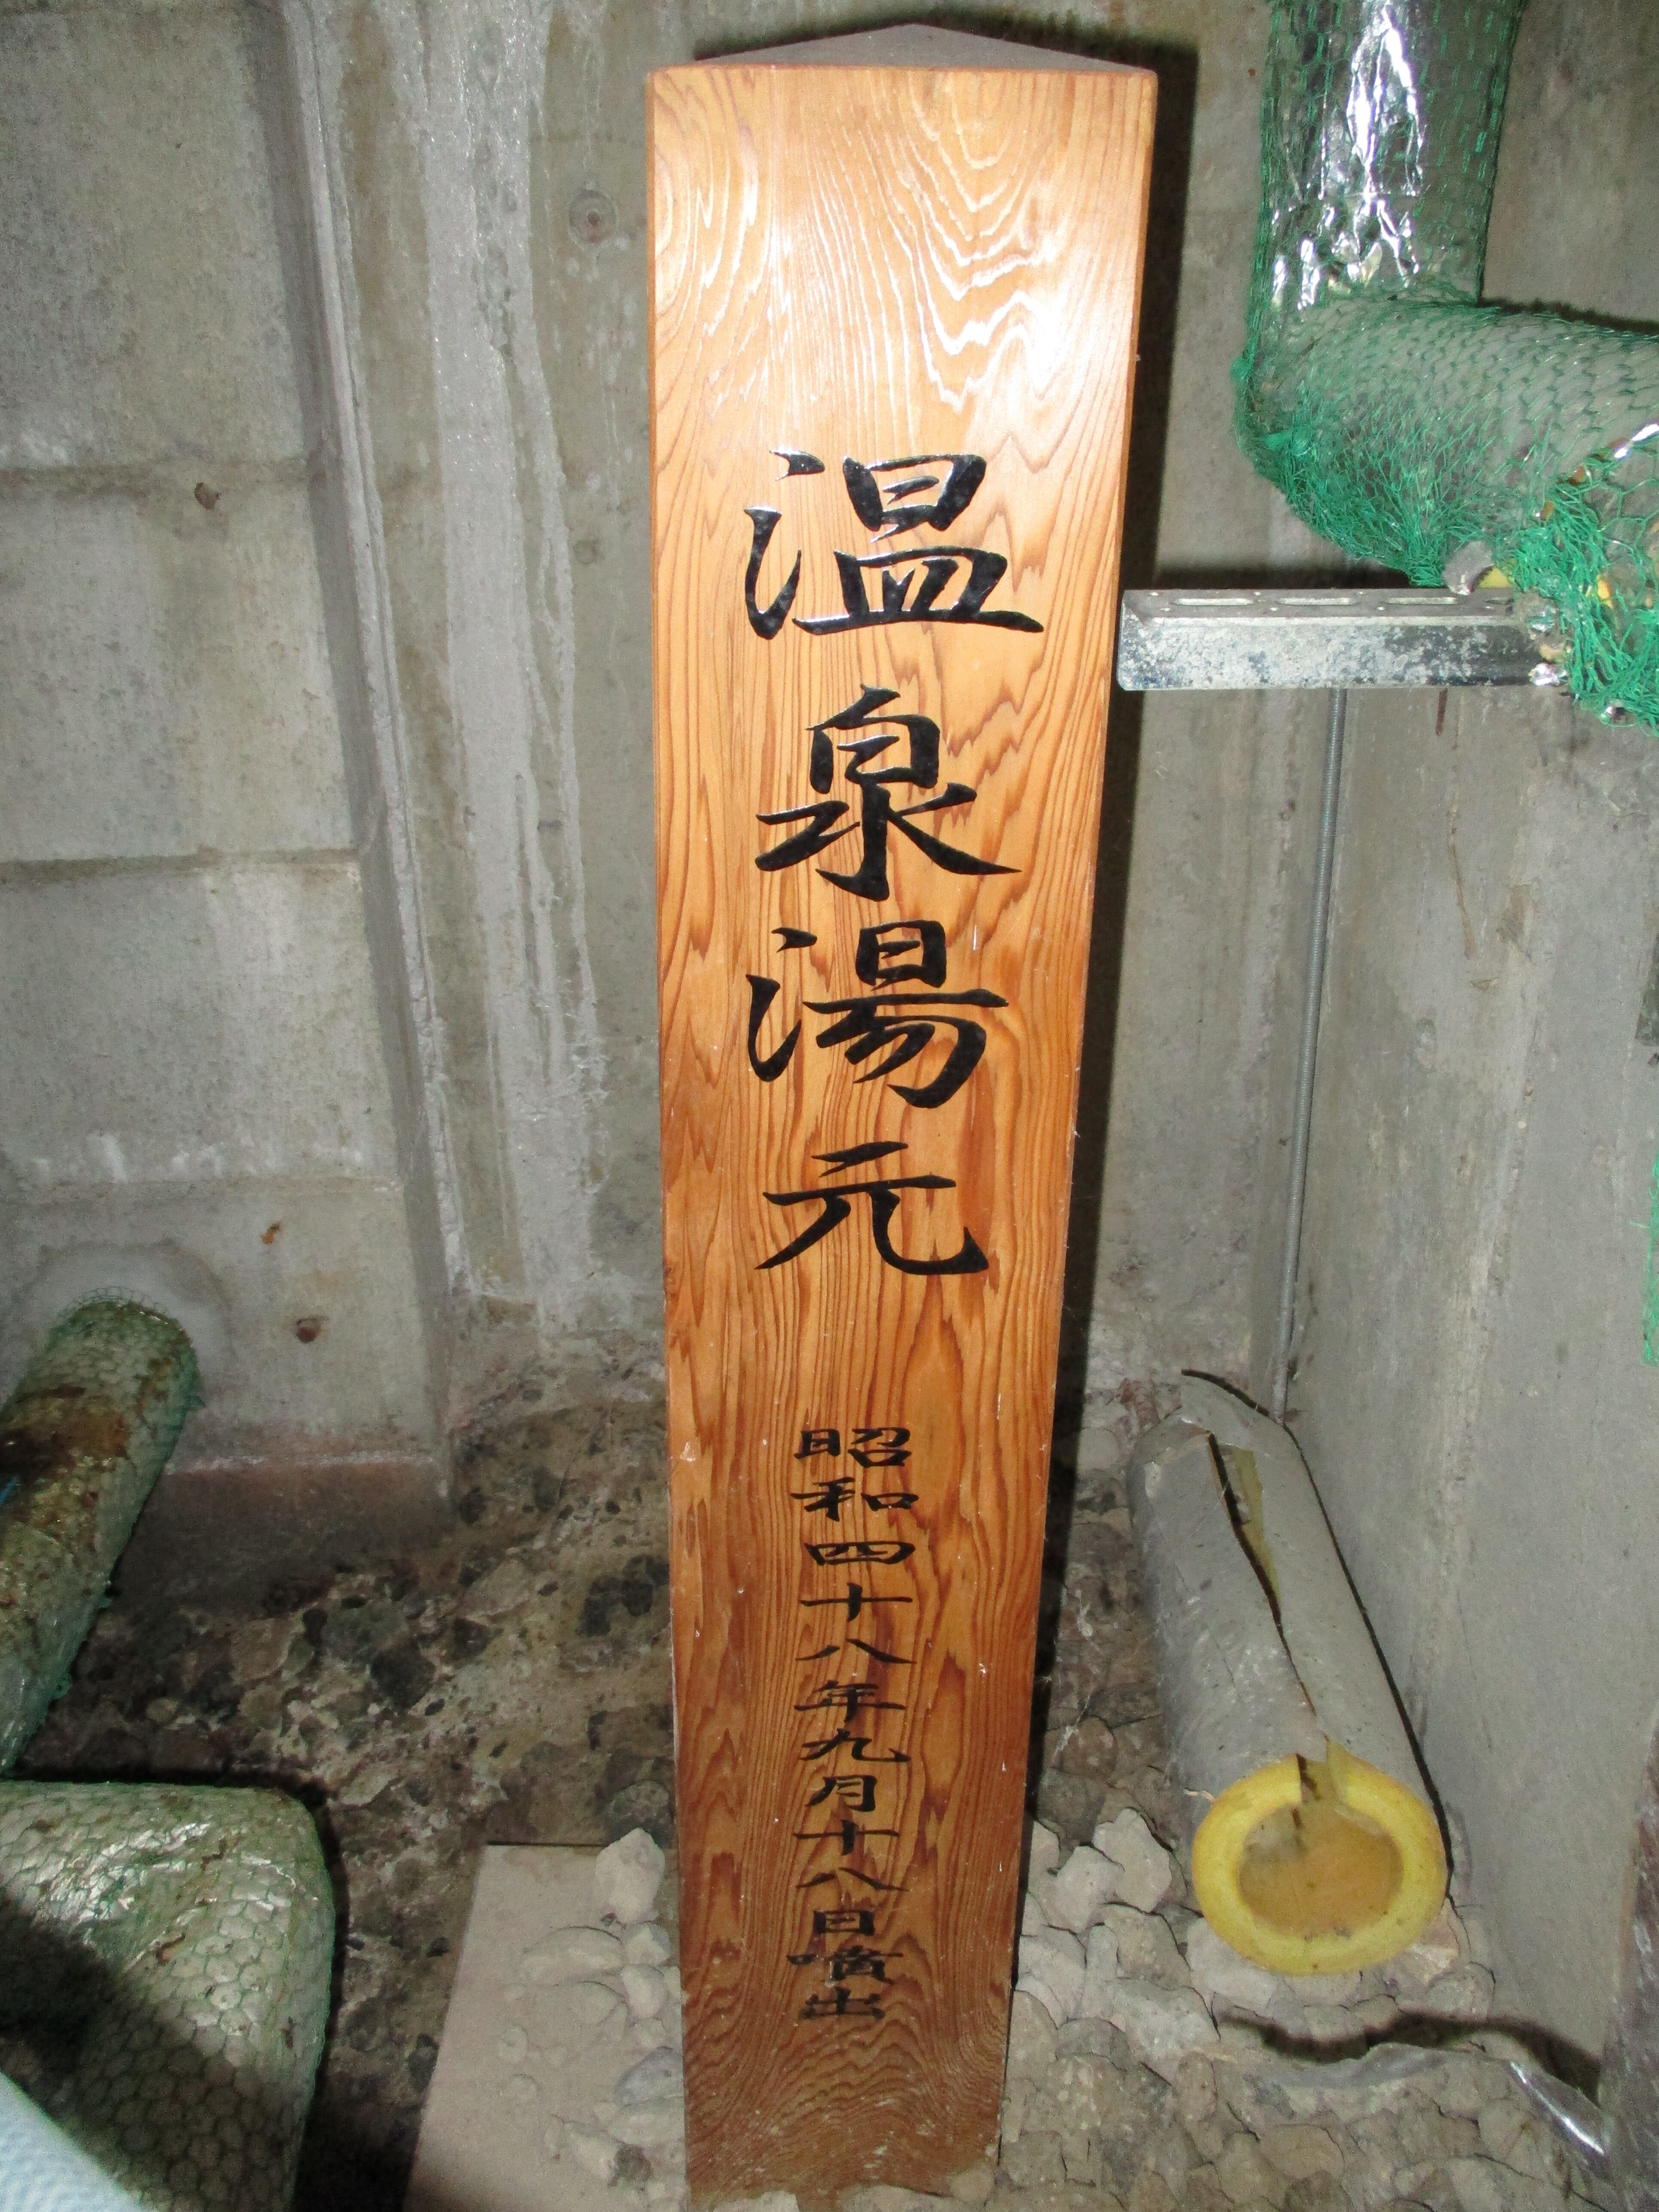 温泉湯元
昭和四十八年九月十八日噴出